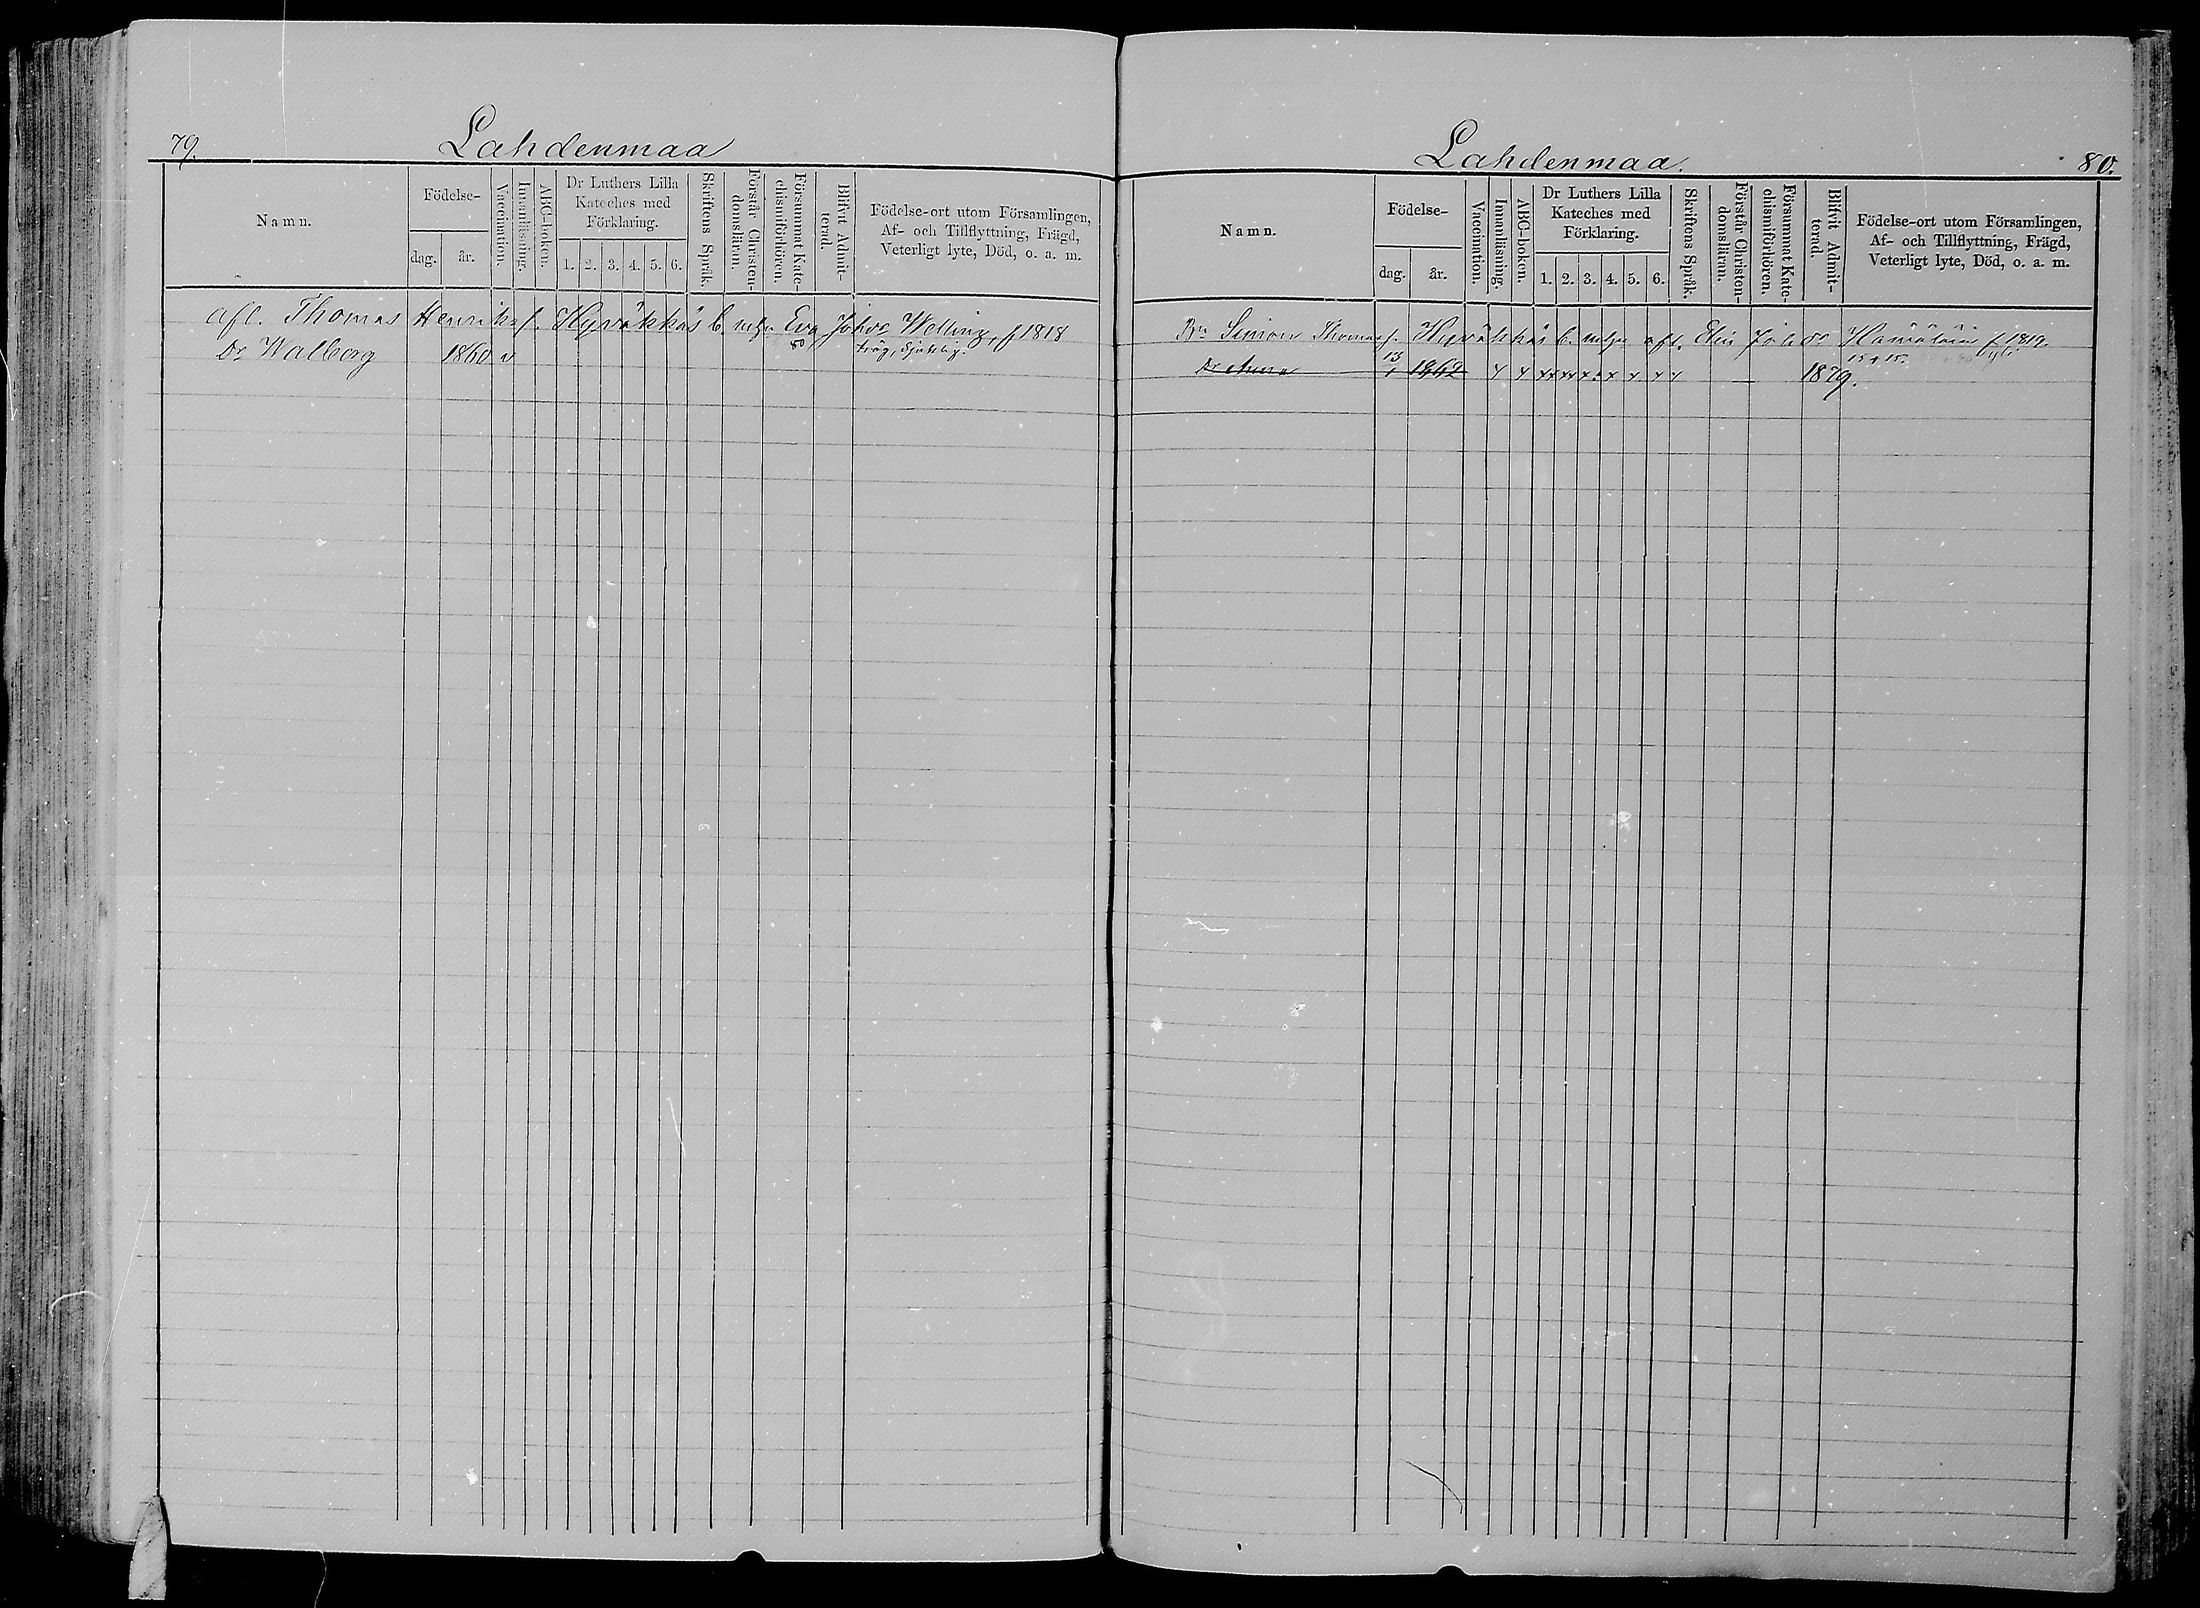 79.
Lahdenmaa
Namn.
Födelse-
dag.
år.
Vaccination.
Innanläsning.
ABC-boken.
Dr Luthers Lilla
Kateches med
Förklaring.
1. 2. 3. 4. 5. 6.
Skriftens Språk.
Förstår Christen-
domsläran.
Försummat Kate-
chismiförhören.
Blifvit Admit-
terad.
Födelse-ort utom Församlingen,
Af- och Tillflyttning, Frägd,
Veterligt lyte, Död, o. a. m.
afl. Thomas Henrikss. Hyväkkäs b. Eva Joh. Welling, f 1818
Dr Walborg 1860 v 80 trög, sjuklig.
Lahdenmaa.
80.
Namn.
Födelse-
dag.
år.
Vaccination.
Innanläsning.
ABC-boken.
Dr Luthers Lilla
Kateches med
Förklaring.
1. 2. 3. 4. 5. 6.
Skriftens Språk.
Förstår Christen-
domsläran.
Försummat Kate-
chismiförhören.
Blifvit Admit-
terad.
Födelse-ort utom Församlingen,
Af- och Tillflyttning, Frägd,
Veterligt lyte, Död, o. a. m.
Simon Thomas. Hyväkkäs b. afl. f 1819.
Dr Anna 13 1 1862 1879.